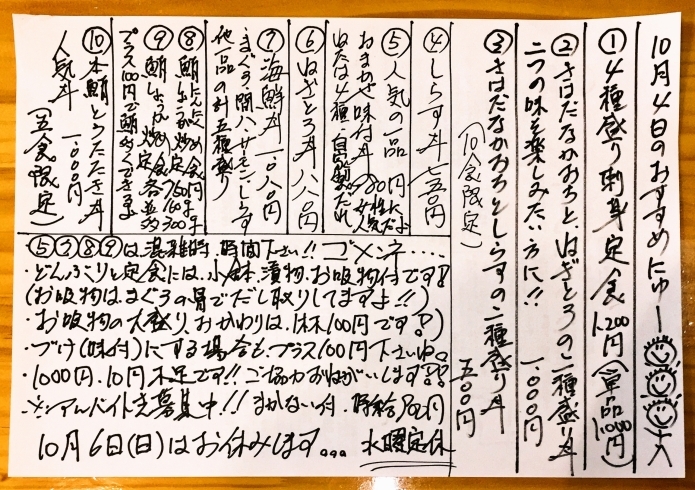 10月4日のおすすめにゅー
① 4種盛り刺身定食 1,200円(単品1,000円)
② さはだなかおちと、ねぎとろの二種盛り丼
二つの味を楽しみたい方に!! 1,000円
③ さはだなかおちとしらすの二種盛り丼
(10食限定) 五〇〇円
④ しらす丼 七五〇円
⑤ 人気の一品
おまかせ味付丼
または4種・自家製だれ
⑥ ねぎとろ丼 八八〇円
⑦ 海鮮丼 一、〇八〇円
まぐろ・間八・サーモン・しらす
他一品の計五種盛り
⑧ 鮪にんにく炒め定食
⑨ 鮪しょうが炒め定食
プラス100円で
⑩ 本鮪とろたたき丼
人気丼 一、〇〇〇円
(五食限定)
⑤⑦⑧⑨は混雑時、時間下さい!! ゴメンネ・・・・
・どんぶりと定食には、小鉢、漬物、お吸物付です!
(お吸物は、まぐろの骨でだし取りしてますよ!!)
・お吸物の大盛り、おかわりは、1杯100円です?
・づけ(味付)にする場合も、プラス100円下さいね。
・1000円、10円不足です!! ご協力おねがいします?
※アルバイト
募集中!! まかない付、時給
10月6日(日)はお休みします...
水曜定休